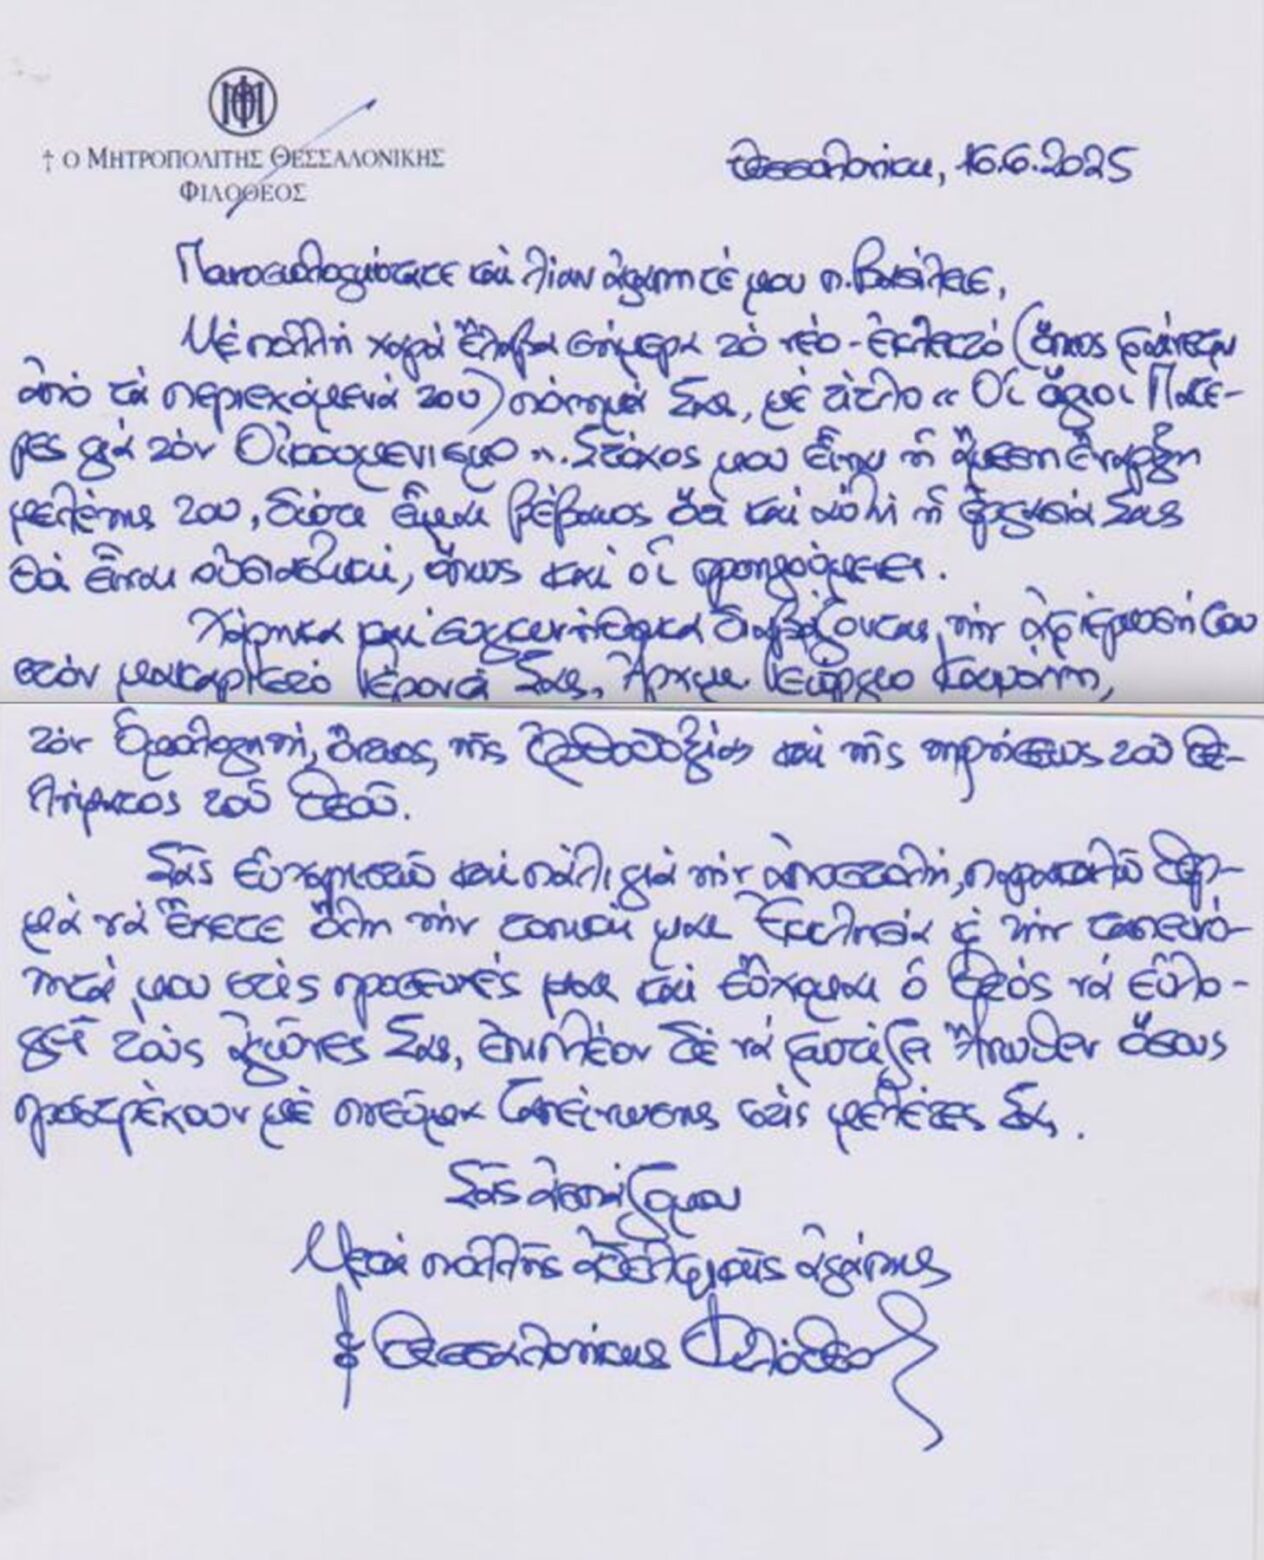 † Ο ΜΗΤΡΟΠΟΛΙΤΗΣ ΘΕΣΣΑΛΟΝΙΚΗΣ
ΦΙΛΟΘΕΟΣ
Θεσσαλονίκη, 16.6.2025
Πανοσιολογιώτατε καὶ λίαν ἀγαπητέ μου π. Βασίλειε,
Μέ πολλή χαρά ἔλαβα σήμερα τό νέο - ἐκλεκτό (ὅπως φαίνεται
ἀπό τά περιεχόμενά του) πόνημά Σας, μέ τίτλο «Οἱ ἅγιοι Πατέ-
ρες γιά τόν Οἰκουμενισμό». Στόχος μου εἶναι ἡ ἄμεση ἔναρξη
μελέτης του, διότι εἶμαι βέβαιος ὅτι καί αὐτή ἡ ἐργασία Σας
θά εἶναι οὐσιαστική, ὅπως καί οἱ προηγούμενες.
Χάρηκα καί συγκινήθηκα διαβάζοντας τήν ἀφιέρωσή του
στόν μακαριστό Γέροντά Σας, Ἀρχιμ. Γεώργιο Καψάνη,
τόν Ὁμολογητή, ὄντως, τῆς Ὀρθοδοξίας καί τῆς τηρήσεως τοῦ Θε-
λήματος τοῦ Θεοῦ.
Σᾶς εὐχαριστῶ καί πάλι γιά τήν ἀποστολή, παρακαλῶ θερ-
μά νά ἔχετε ὅλη τήν τοπική μας Ἐκκλησία & τήν ταπεινό-
τητά μου στίς προσευχές μας καί εὔχομαι ὁ Θεός νά εὐλο-
γεῖ τούς ἀγῶνες Σας, ἐπιπλέον δέ νά φωτίζει Ἄνωθεν ὅσους
προστρέχουν μέ πνεῦμα ταπείνωσης στίς μελέτες Σας.
Σᾶς ἀσπάζομαι
Μετά πολλῆς ἀδελφικῆς ἀγάπης
† ὁ Θεσσαλονίκης Φιλόθεος